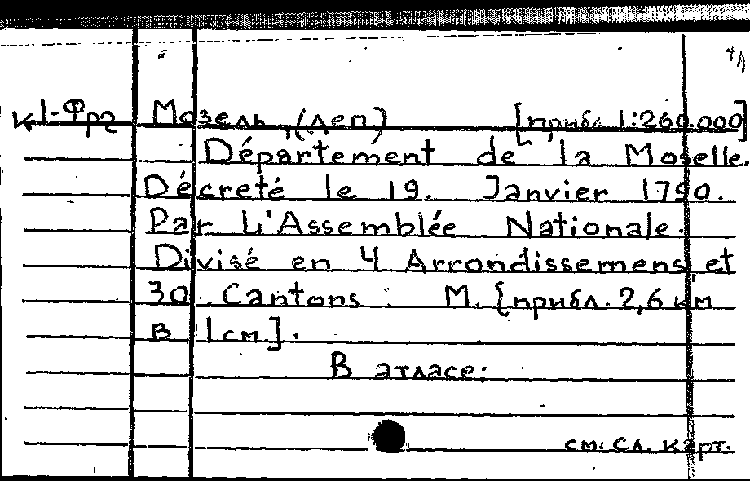 К 1-Фр2 Мозель, (деп) [прибл 1:260.000]
Département de la Moselle.
Décreté le 19. Janvier 1790.
Par L'Assemblée Nationale.
Divisé en 4 Arrondissemens et
30 Cantons : М. [прибл. 2,6 км
в 1см].
В атласе:
см. сл. карт.